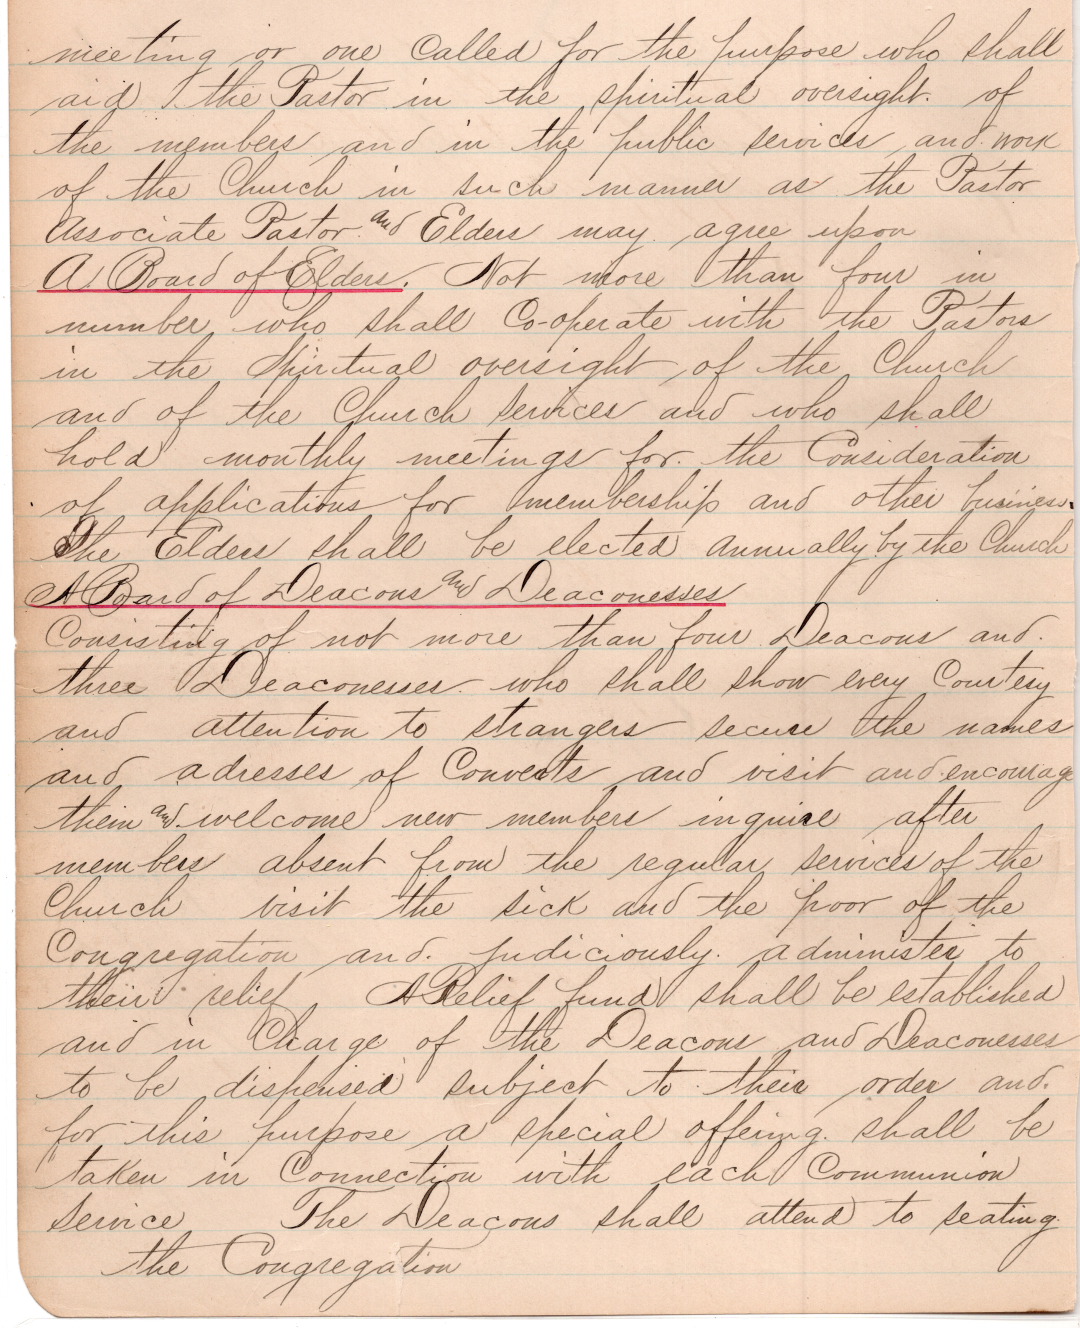 meeting or one Called for the purpose who shall
aid the Pastor in the spiritual oversight. of
the members and in the public services and work
of the Church in such manner as the Pastor
Associate Pastor and Elders may agree upon
A Board of Elders. Not more than four in
number who shall Co-operate with the Pastors
in the Spiritual oversight of the Church
and of the Church Services and who shall
hold monthly meetings for the Consideration
of applications for membership and other business.
The Elders shall be elected annually by the Church
A Board of Deacons and Deaconesses
Consisting of not more than four Deacons and
three Deaconesses who shall show every Courtesy
and attention to strangers secure the names
and adresses of Converts and visit and encourage
them and welcome new members inquire after
members absent from the regular services of the
Church visit the sick and the poor of the
Congregation and judiciously administer to
their relief A Relief fund shall be established
and in Charge of the Deacons and Deaconesses
to be dispensed subject to their order and
for this purpose a special offering shall be
taken in Connection with each Communion
Service The Deacons shall attend to seating
the Congregation